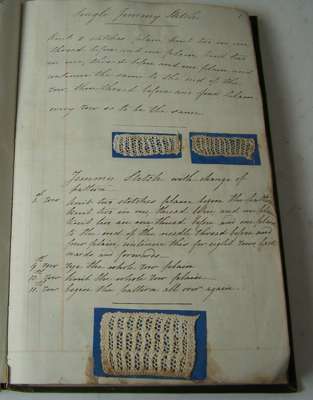 Single Jenny Stitch
Knit 2 stitches plain knit two in one
thread before and one plain knit two
in one, thread before and one plain and
continue the same to the end of the
row then thread before and four plain
every row to be the same
Jenny Stitch with change of
pattern
1 row Knit two stitches plain before the
Knit two in one thread before and one plain
Knit two in one thread before and one plain
to the end of the needle thread before and
four plain continue this for eight rows back
wards and forwards
9 row the whole row plain
10 row Knit the whole row plain
11 row begin the pattern all over again